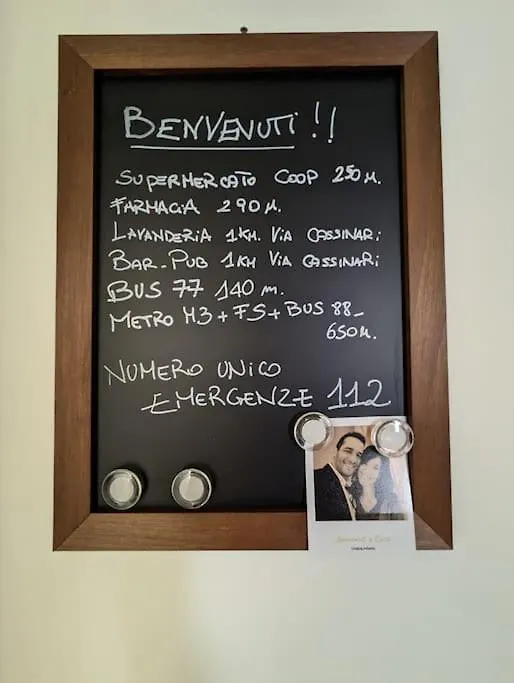 BENVENUTI!!
SUPERMERCATO COOP 250 M.
FARMACIA 290 M.
LAVANDERIA 1KM. VIA CASSINARI
BAR-PUB 1KM VIA CASSINARI
BUS 77 140 m.
METRO M3+FS+BUS 88-
650M.
NUMERO UNICO
EMERGENZE 112